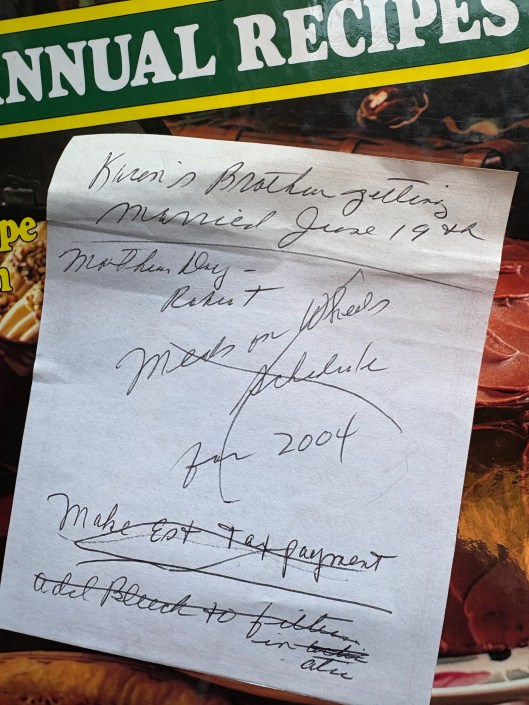 NNUAL RECIPES
pe
n
Karen's Brother getting
married June 19th
Mother Day -
Robert
Meals on Wheels
Schedule
for 2004
Make Est Tax payment
add Bleach to filter
in